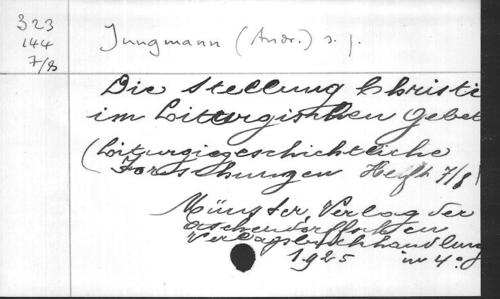 323
144
7/8
Jungmann (Andr.) s. j.
Die Stellung Christi
im Liturgischen Gebet
(Liturgiegeschichtliche
Forschungen Heft 7/8)
Münster, Verlag der
Aschendorffschen
Verlagsbuchhandlung
1925 in 4°